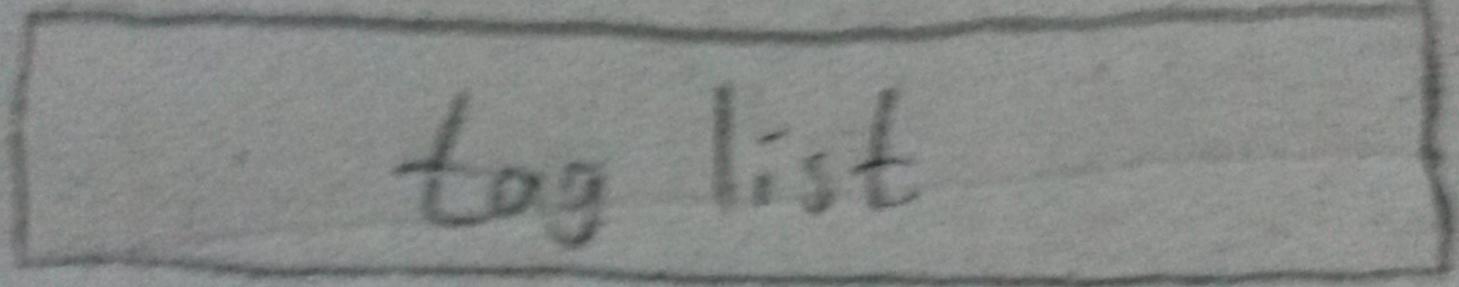 tag list